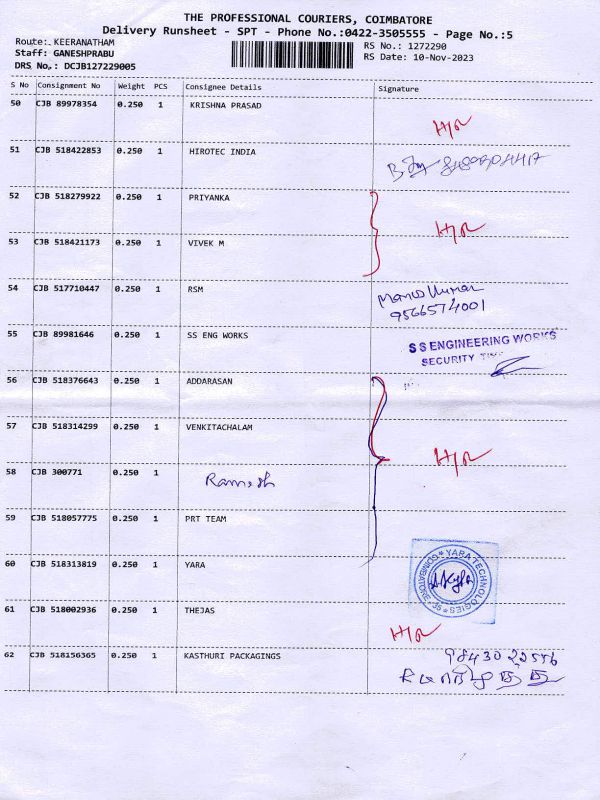 THE PROFESSIONAL COURIERS, COIMBATORE
Delivery Runsheet - SPT - Phone No.:0422-3505555 - Page No.:5
Route: KEERANATHAM
RS No.: 1272290
Staff: GANESHPRABU
RS Date: 10-Nov-2023
DRS No.: DCJB127229005
S No Consignment No Weight PCS Consignee Details Signature
50 CJB 89978354 0.250 1 KRISHNA PRASAD
H/R
51 CJB 518422853 0.250 1 HIROTEC INDIA
52 CJB 518279922 0.250 1 PRIYANKA
H/R
53 CJB 518421173 0.250 1 VIVEK M
54 CJB 517710447 0.250 1 RSM
Manoj Kumar
9566574001
55 CJB 89981646 0.250 1 SS ENG WORKS
S S ENGINEERING WORKS
SECURITY
56 CJB 518376643 0.250 1 ADDARASAN
57 CJB 518314299 0.250 1 VENKITACHALAM
H/R
58 CJB 300771 0.250 1 Ramesh
59 CJB 518057775 0.250 1 PRT TEAM
60 CJB 518313819 0.250 1 YARA
YARA TECHNOLOGIES
COIMBATORE - 35
61 CJB 518002936 0.250 1 THEJAS
H/R
62 CJB 518156365 0.250 1 KASTHURI PACKAGINGS
98430 22556